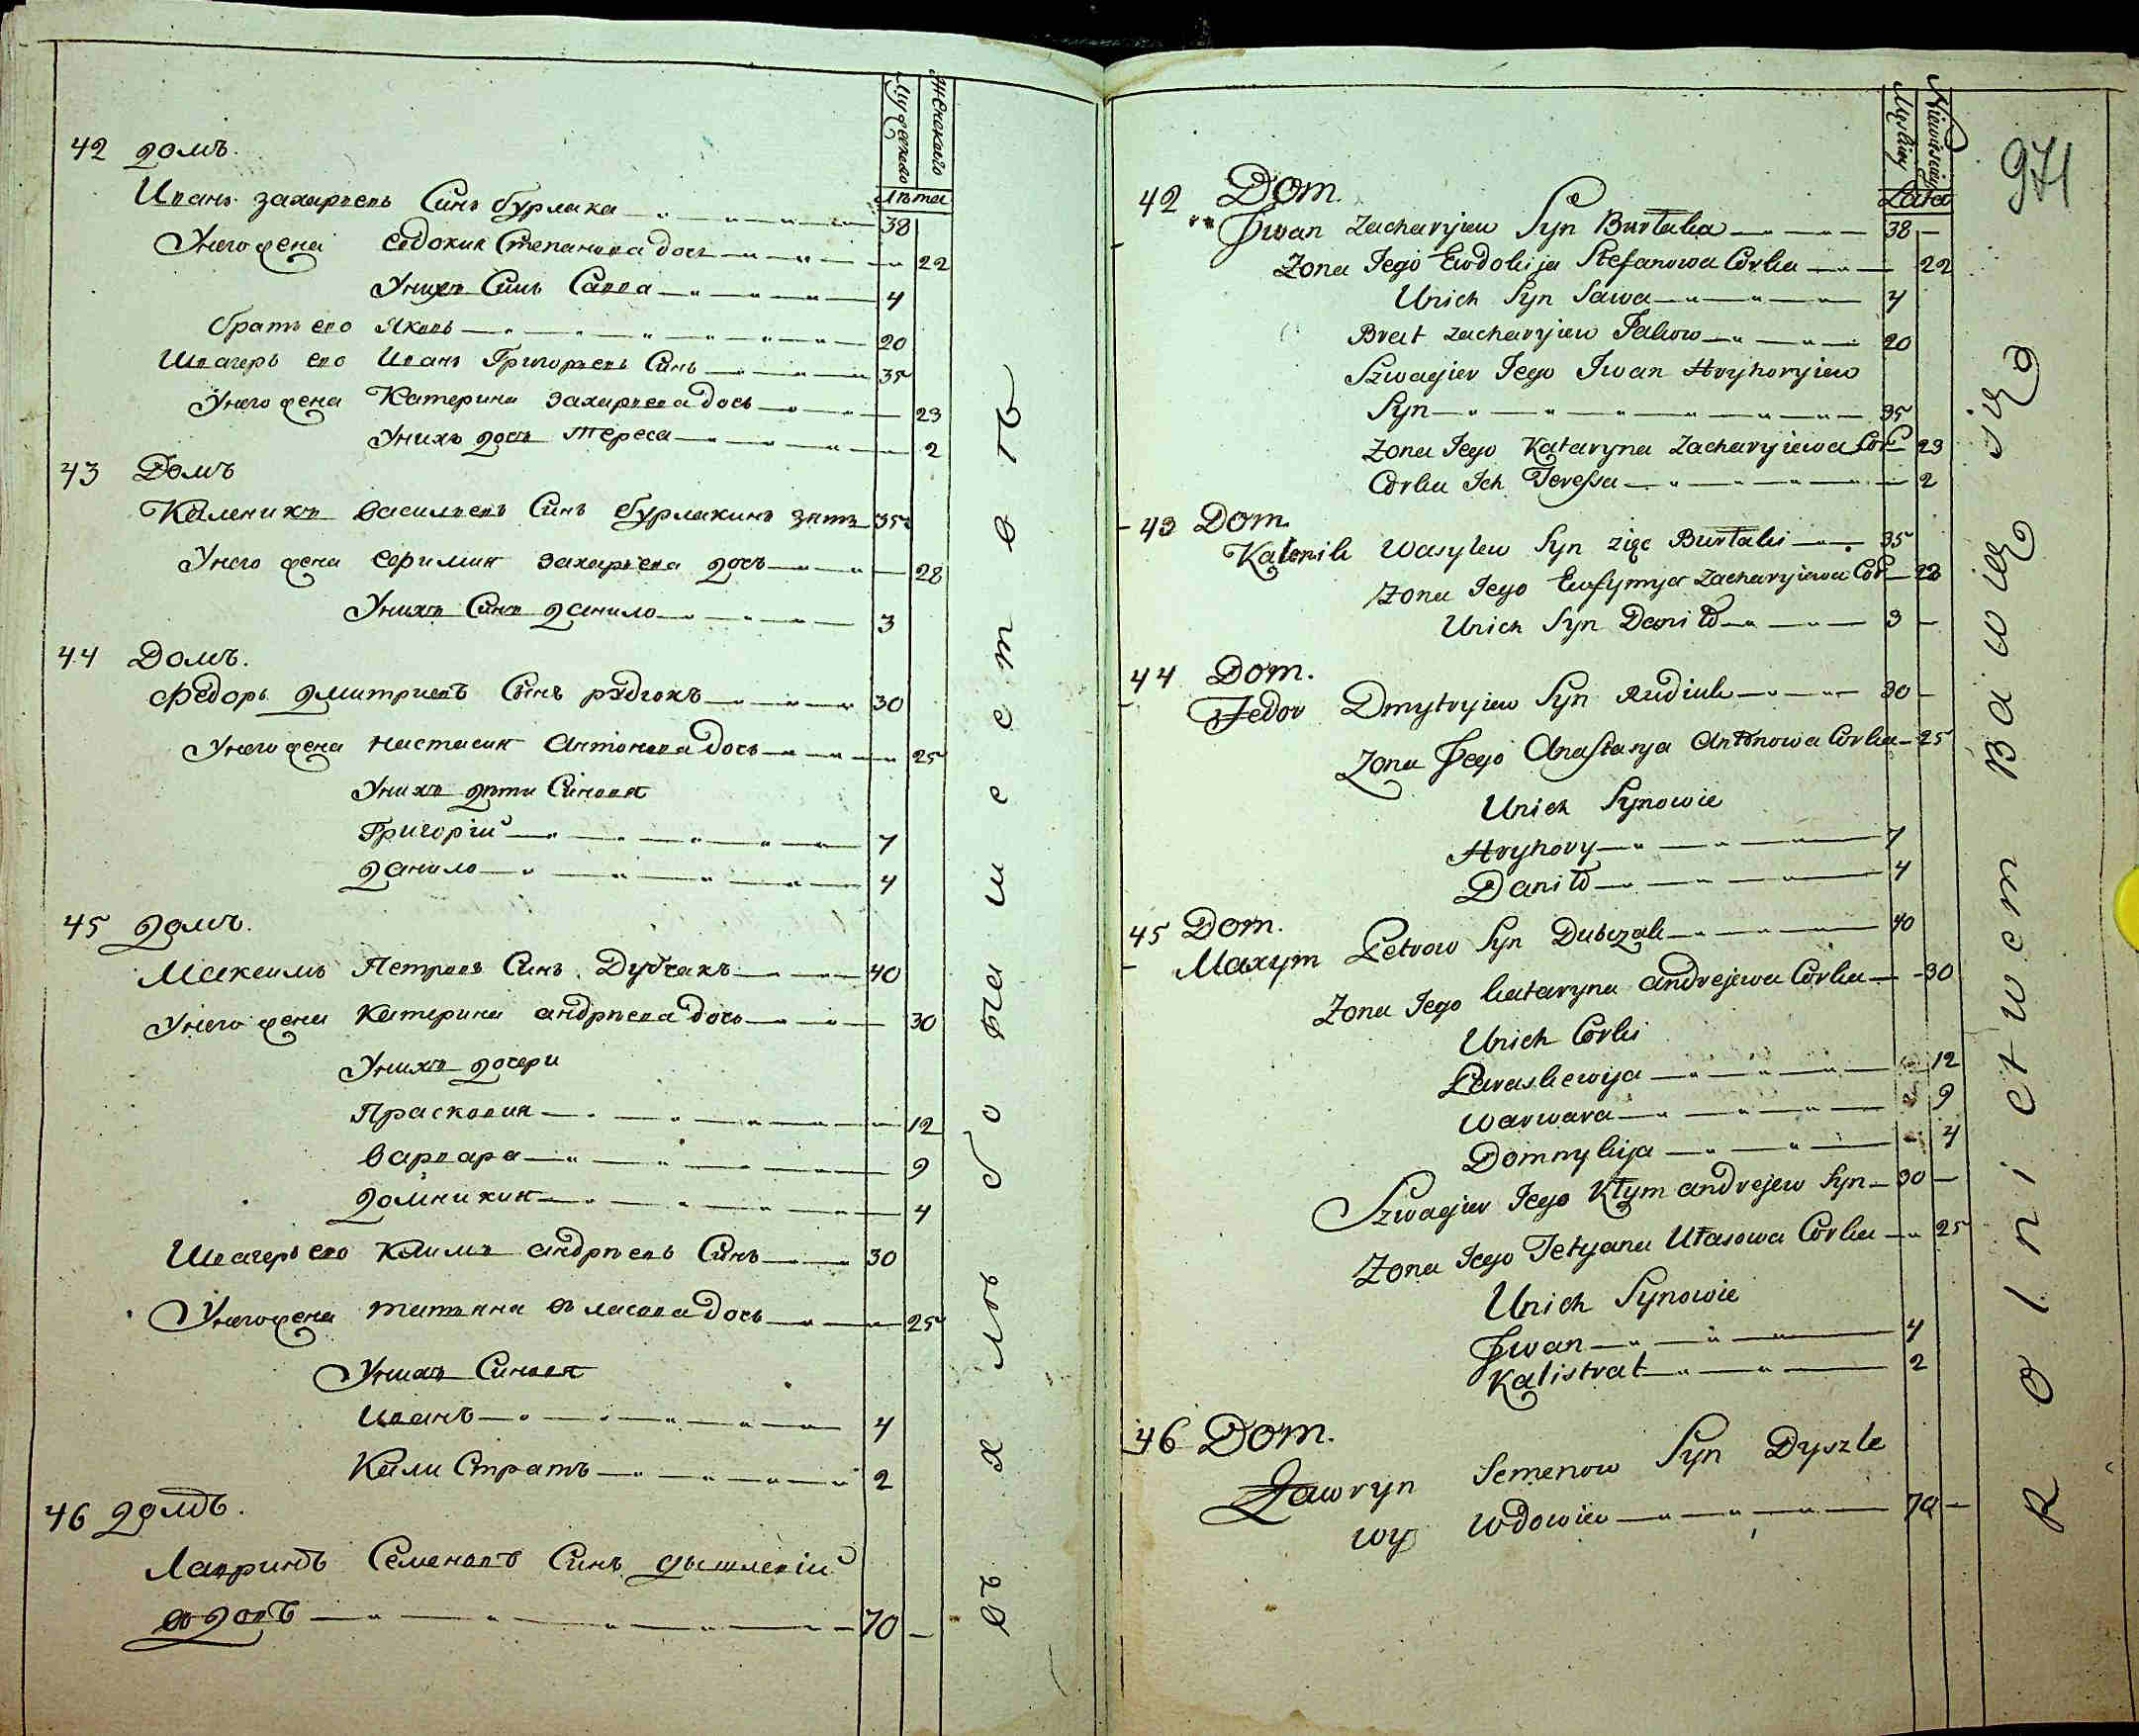 Мужеского
Женского
Лѣта
42 домъ.
Иванъ захариевъ Синъ бурлака 38
Унего жена евдокия Степанова дочъ 22
Унихъ Синъ Савва 4
братъ его Яковъ 20
Швагеръ его Иванъ Григориевъ Синъ 35
Унего жена Катерина захариева дочъ 23
Унихъ дочъ тереса 2
43 Домъ
Каленикъ васильевъ Синъ бурлакинъ зять 35
Унего жена ефимия захариева дочъ 28
Унихъ Синъ данило 3
44 Домъ.
Федоръ дмитриевъ Синъ рудюкъ 30
Унего жена настасия антонова дочъ 25
Унихъ дѣти Синовя
Григорій 7
данило 4
45 домъ.
Максимъ Петровъ Синъ Дубчакъ 40
Унего жена катерина андрѣева дочъ 30
Унихъ дочери
Прасковия 12
варвара 9
домникия 4
Швагеръ его Климъ андрѣевъ Синъ 30
Унего жена татьяна власова дочъ 25
Унихъ Синовя
иванъ 4
Кали Стратъ 2
46 домъ.
Лавринъ Семеновъ Синъ дышлевій
вдовъ 70
въ хлѣбопашествѣ
971
Męskiey
Niewieściey
Lata
42 Dom.
Jwan Zacharyiew Syn Burłaka 38
Zona Jego Ewdokija Stefanowa Corka 22
Unich Syn Sawa 4
Brat zacharyiew Jakow 20
Szwagier Jego Jwan Hryhoryiew
Syn 35
Zona Jego Kataryna Zacharyiewa Cor 23
Corka Jch Teressa 2
43 Dom.
Kalenik Wasylew Syn zięc Burłaki 35
Zona Jego Eufymya Zacharyiewa Cor 28
Unich Syn Daniło 3
44 Dom.
Fedor Dmytryiew Syn Rudiuk 30
Zona Jego Anastasya Antonowa Corka 25
Unich Synowie
Hryhory 7
Daniło 4
45 Dom.
Maxym Petrow Syn Dubczak 40
Zona Jego kataryna andrejewa Corka 30
Unich Corki
Paraskewija 12
Warwara 9
Domnykija 4
Szwagier Jego Kłym andrejew Syn 30
Zona Jego Tetyana Ułasowa Corka 25
Unich Synowie
Jwan 4
Kalistrat 2
46 Dom.
Ławryn Semenow Syn Dyszle
wy Wdowiec 70
Rolnictwem Bawią się